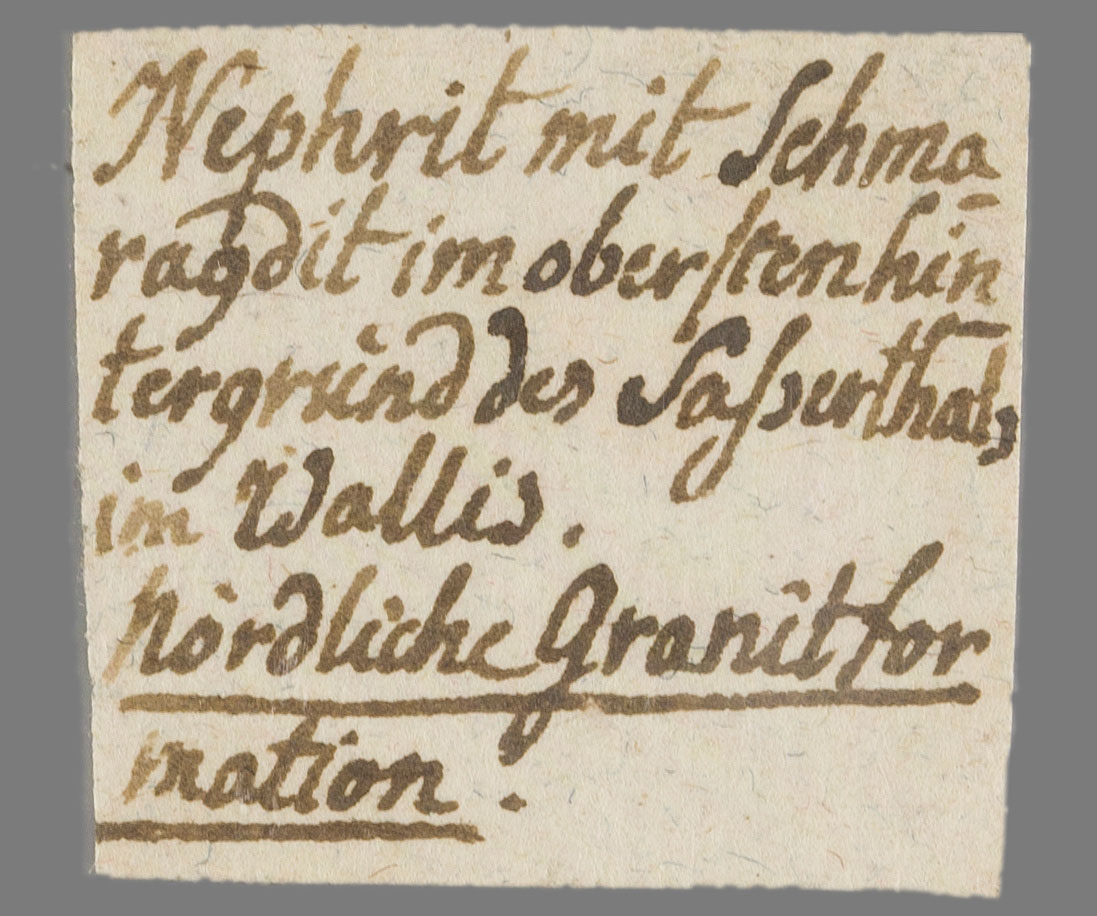 Nephrit mit Schma-
ragdit im obersten hin-
tergrund des Saſserthals
im Wallis.
Nördliche Granitfor
mation.